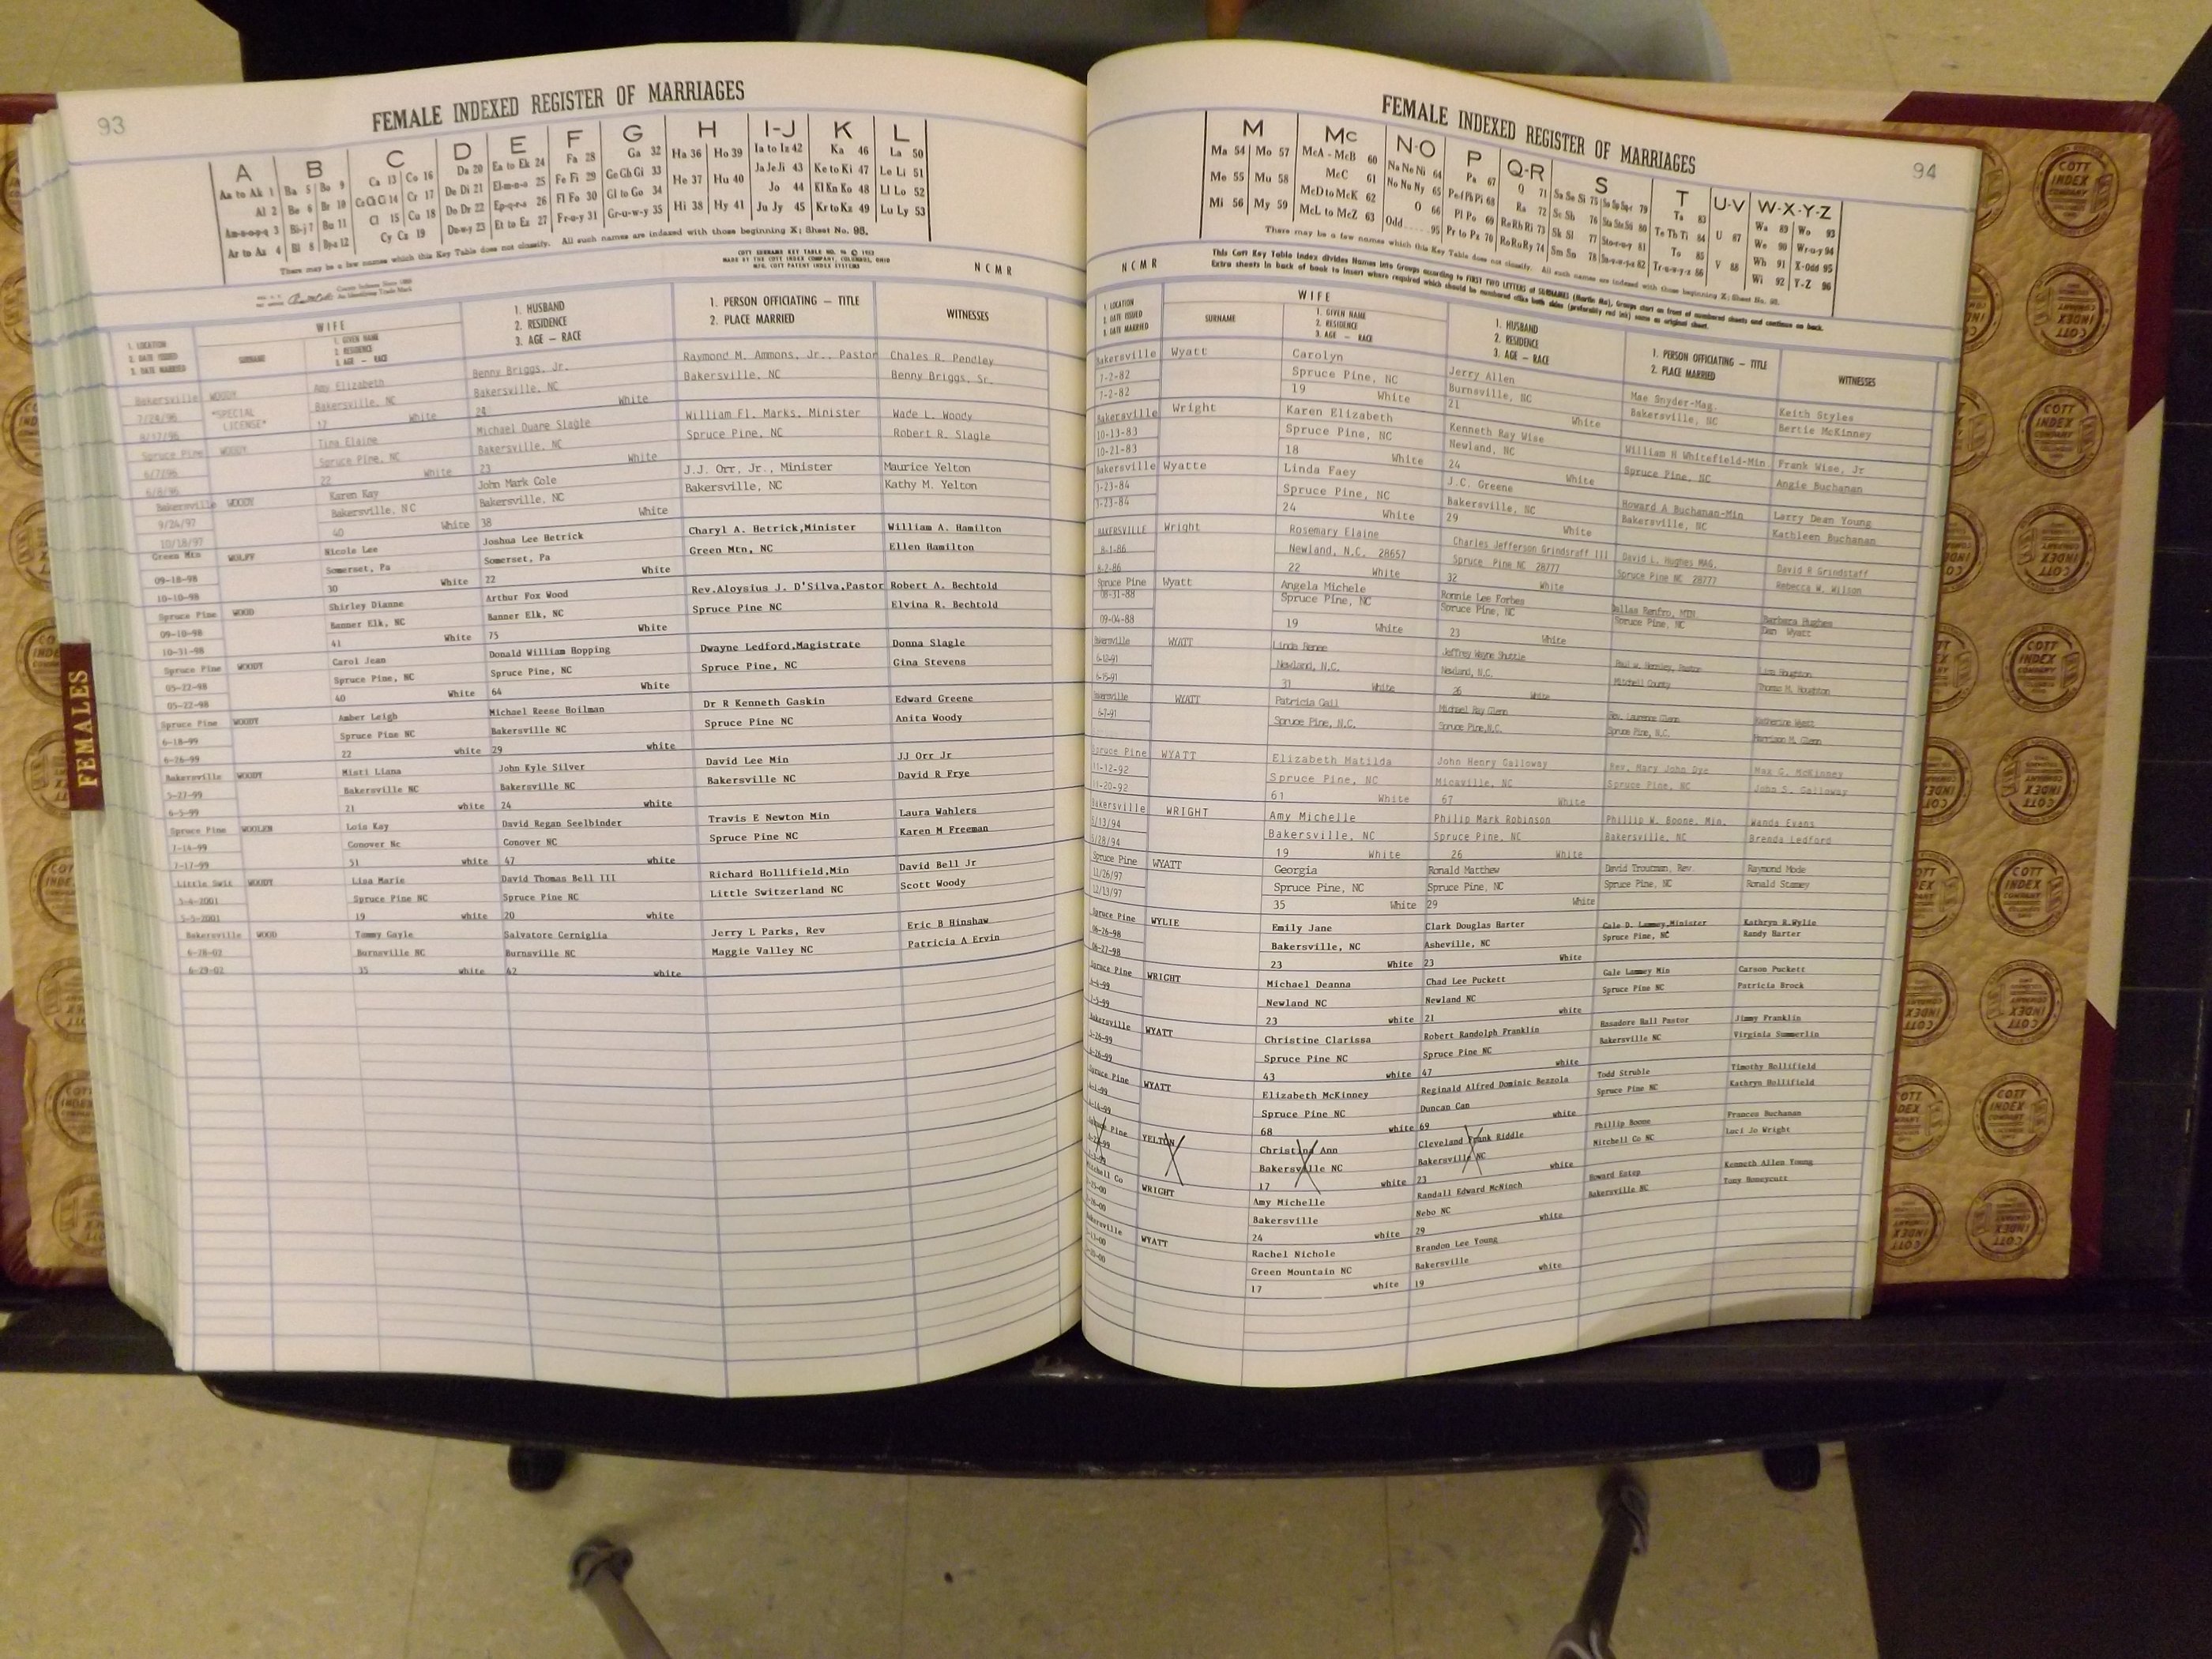 93
FEMALE INDEXED REGISTER OF MARRIAGES
A B C D E F G H I-J K L
Aa to Ak 1 Ba 5 Bo 9 Ca 13 Co 16 Da 20 Ea to Ek 24 Fa 28 Ga 32 Ha 36 Ho 39 Ia to Iz 42 Ka 46 La 50
Al 2 Be 6 Br 10 Ce Ch Ci 14 Cr 17 De Di 21 El-m-n-o 25 Fe Fi 29 Ge Gh Gi 33 He 37 Hu 40 Ja Je Ji 43 Ke to Ki 47 Le Li 51
Am-n-o-p-q 3 Bi-j 7 Bu 11 Cl 15 Cu 18 Do Dr 22 Ep-q-r-s 26 Fl Fo 30 Gl to Go 34 Hi 38 Hy 41 Jo 44 Kl Kn Ko 48 Ll Lo 52
Ar to Az 4 Bl 8 By-z 12 Cy Cz 19 Du-w-y 23 Et to Ez 27 Fr-u-y 31 Gr-u-w-y 35 Ju Jy 45 Kr to Kz 49 Lu Ly 53
There may be a few names which this Key Table does not classify. All such names are indexed with those beginning X; Sheet No. 95.
COTT SURNAME KEY TABLE NO. 96 © 1953
MADE BY THE COTT INDEX COMPANY, COLUMBUS, OHIO
MFG. COTT PATENT INDEX SYSTEMS
NCMR
1. LOCATION
2. DATE ISSUED
3. DATE MARRIED
WIFE
SURNAME
1. GIVEN NAME
2. RESIDENCE
3. AGE — RACE
1. HUSBAND
2. RESIDENCE
3. AGE — RACE
1. PERSON OFFICIATING — TITLE
2. PLACE MARRIED
WITNESSES
Bakersville WOODY Amy Elizabeth Benny Briggs, Jr. Raymond M. Ammons, Jr., Pastor Chales R. Pendley
7/24/96 *SPECIAL Bakersville, NC Bakersville, NC Bakersville, NC Benny Briggs, Sr.
8/17/96 LICENSE* 17 White 24 White
Spruce Pine WOODY Tina Elaine Michael Duane Slagle William Fl. Marks, Minister Wade L. Woody
6/7/96 Spruce Pine, NC Bakersville, NC Spruce Pine, NC Robert R. Slagle
6/8/96 22 White 23 White
Bakersville WOODY Karen Kay John Mark Cole J.J. Orr, Jr., Minister Maurice Yelton
9/24/97 Bakersville, NC Bakersville, NC Bakersville, NC Kathy M. Yelton
10/18/97 40 White 38 White
Green Mtn WOLFF Nicole Lee Joshua Lee Hetrick Charyl A. Hetrick,Minister William A. Hamilton
09-18-98 Somerset, Pa Somerset, Pa Green Mtn, NC Ellen Hamilton
10-10-98 30 White 22 White
Spruce Pine WOOD Shirley Dianne Arthur Fox Wood Rev.Aloysius J. D'Silva,Pastor Robert A. Bechtold
09-10-98 Banner Elk, NC Banner Elk, NC Spruce Pine NC Elvina R. Bechtold
10-31-98 41 White 75 White
Spruce Pine WOODY Carol Jean Donald William Hopping Dwayne Ledford,Magistrate Donna Slagle
05-22-98 Spruce Pine, NC Spruce Pine, NC Spruce Pine, NC Gina Stevens
05-22-98 40 White 64 White
Spruce Pine WOODY Amber Leigh Michael Reese Hoilman Dr R Kenneth Gaskin Edward Greene
6-18-99 Spruce Pine NC Bakersville NC Spruce Pine NC Anita Woody
6-26-99 22 white 29 white
Bakersville WOODY Misti Liana John Kyle Silver David Lee Min JJ Orr Jr
5-27-99 Bakersville NC Bakersville NC Bakersville NC David R Frye
6-5-99 21 white 24 white
Spruce Pine WOOLEN Lois Kay David Regan Seelbinder Travis E Newton Min Laura Wahlers
7-14-99 Conover Nc Conover NC Spruce Pine NC Karen M Freeman
7-17-99 51 white 47 white
Little Swit WOODY Lisa Marie David Thomas Bell III Richard Hollifield,Min David Bell Jr
5-4-2001 Spruce Pine NC Spruce Pine NC Little Switzerland NC Scott Woody
5-5-2001 19 white 20 white
Bakersville WOOD Tammy Gayle Salvatore Cerniglia Jerry L Parks, Rev Eric B Hinshaw
6-28-02 Burnsville NC Burnsville NC Maggie Valley NC Patricia A Ervin
6-29-02 35 white 62 white
FEMALES
FEMALE INDEXED REGISTER OF MARRIAGES
94
M Mc N-O P Q-R S T U-V W-X-Y-Z
Ma 54 Mo 57 McA - McB 60 Na Ne Ni 64 Pa 67 Q 71 Sa Se Si 75 Sn So Sp-r 79 Ta 83 U 87 Wa 89 Wo 93
Me 55 Mu 58 McC 61 No Nu Ny 65 Pe Pf Ph Pi 68 Ra 72 Sc Sh 76 Sta Ste Sti 80 Te Th Ti 84 V 88 We 90 Wr-u-y 94
Mi 56 My 59 McD to McK 62 O 66 Pl Po 69 Re Rh Ri 73 Sk Sl 77 Sto-r-u-y 81 To 85 Wh 91 X-Odd 95
McL to McZ 63 Odd 95 Pr to Pz 70 Ro Ru Ry 74 Sm 78 Su-v-w-y-z 82 Tr-u-w-y-z 86 Wi 92 Y-Z 96
There may be a few names which this Key Table does not classify. All such names are indexed with those beginning X; Sheet No. 95.
NCMR
This Cott Key Table Index divides Names into Groups according to FIRST TWO LETTERS of SURNAMES (Martin Ma). Groups start on front of numbered sheets and continue on back.
Extra sheets in back of book to insert where required which should be numbered alike both sides (preferably red ink) same as original sheet.
1. LOCATION
2. DATE ISSUED
3. DATE MARRIED
WIFE
SURNAME
1. GIVEN NAME
2. RESIDENCE
3. AGE — RACE
1. HUSBAND
2. RESIDENCE
3. AGE — RACE
1. PERSON OFFICIATING — TITLE
2. PLACE MARRIED
WITNESSES
Bakersville Wyatt Carolyn Jerry Allen Mae Snyder-Mag. Keith Styles
7-2-82 Spruce Pine, NC Burnsville, NC Bakersville, NC Bertie McKinney
7-2-82 19 White 21 White
Bakersville Wright Karen Elizabeth Kenneth Ray Wise William H Whitefield-Min Frank Wise, Jr
10-13-83 Spruce Pine, NC Newland, NC Spruce Pine, NC Angie Buchanan
10-21-83 18 White 24 White
Bakersville Wyatte Linda Faey J.C. Greene Howard A Buchanan-Min Larry Dean Young
3-23-84 Spruce Pine, NC Bakersville, NC Bakersville, NC Kathleen Buchanan
3-23-84 24 White 29 White
BAKERSVILLE Wright Rosemary Elaine Charles Jefferson Grindstaff III David L. Hughes MAG. David R Grindstaff
8-1-86 Newland, N.C. 28657 Spruce Pine NC 28777 Spruce Pine NC 28777 Rebecca W. Wilson
8-2-86 22 White 32 White
Spruce Pine Wyatt Angela Michele Ronnie Lee Forbes Dallas Renfro, MIN. Barbara Hughes
08-31-88 Spruce Pine, NC Spruce Pine, NC Spruce Pine, NC Dan Wyatt
09-04-88 19 White 23 White
WYATT Linda Renee Jeffrey Wayne Shuttle Lisa Houghton
6-12-91 Newland, N.C. Newland, N.C. Mitchell County Thomas M. Houghton
6-15-91 31 White 26 White
WYATT Patricia Gail Michael Ray Glenn Rev. Laurence Glenn Katherine Wyatt
6-7-91 Spruce Pine, N.C. Spruce Pine,N.C. Spruce Pine, N.C. Harrison M. Glenn
Spruce Pine WYATT Elizabeth Matilda John Henry Galloway Rev. Mary John Dye Max G. McKinney
11-12-92 Spruce Pine, NC Micaville, NC Spruce Pine, NC John S. Galloway
11-20-92 61 White 67 White
Bakersville WRIGHT Amy Michelle Philip Mark Robinson Phillip W. Boone, Min. Wanda Evans
5/13/94 Bakersville, NC Spruce Pine, NC Bakersville, NC Brenda Ledford
5/28/94 19 White 26 White
Spruce Pine WYATT Georgia Ronald Matthew David Troutman, Rev. Raymond Mode
11/26/97 Spruce Pine, NC Spruce Pine, NC Spruce Pine, NC Ronald Stamey
12/13/97 35 White 29 White
Spruce Pine WYLIE Emily Jane Clark Douglas Harter Gale D. Lammey,Minister Kathryn R.Wylie
06-26-98 Bakersville, NC Asheville, NC Spruce Pine, NC Randy Harter
06-27-98 23 White 23 White
Spruce Pine WRIGHT Michael Deanna Chad Lee Puckett Gale Lammey Min Carson Puckett
Newland NC Newland NC Spruce Pine NC Patricia Brock
23 white 21 white
Bakersville WYATT Christine Clarissa Robert Randolph Franklin Hasadore Hall Pastor Jimmy Franklin
Spruce Pine NC Spruce Pine NC Bakersville NC Virginia Summerlin
43 white 47 white
Spruce Pine WYATT Elizabeth McKinney Reginald Alfred Dominic Bezzola Todd Struble Timothy Hollifield
Spruce Pine NC Duncan Can Spruce Pine NC Kathryn Hollifield
68 white 69 white
Spruce Pine YELTON Christina Ann Cleveland Frank Riddle Phillip Boone Frances Buchanan
Bakersville NC Bakersville NC Mitchell Co NC Luci Jo Wright
17 white 23 white
Mitchell Co WRIGHT Amy Michelle Randall Edward McNinch Howard Estep Kenneth Allen Young
Bakersville Nebo NC Bakersville NC Tony Honeycutt
24 white 29 white
Bakersville WYATT Rachel Nichole Brandon Lee Young
Green Mountain NC Bakersville
17 white 19 white
COTT
INDEX
COMPANY